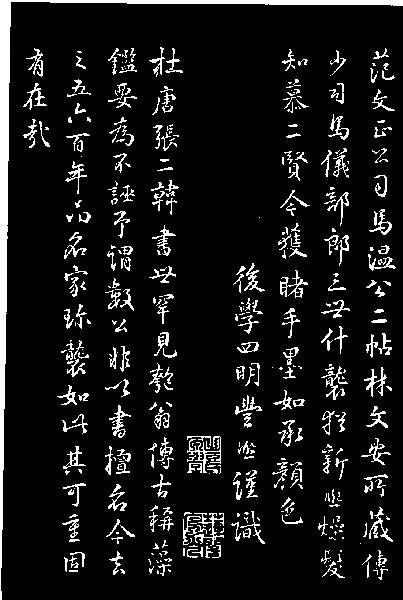 范文正公司馬温公二帖林文安所藏傳
少司馬儀部郎三世什襲猶新熙燥髮
知慕二賢今獲睹手墨如承顏色
後學四明豐熙謹識
杜唐張二韓書世罕見匏翁傳古稱藻
鑑要為不誣予謂數公非以書擅名今去
之五六百年而名家珍襲如此其可重固
有在哉